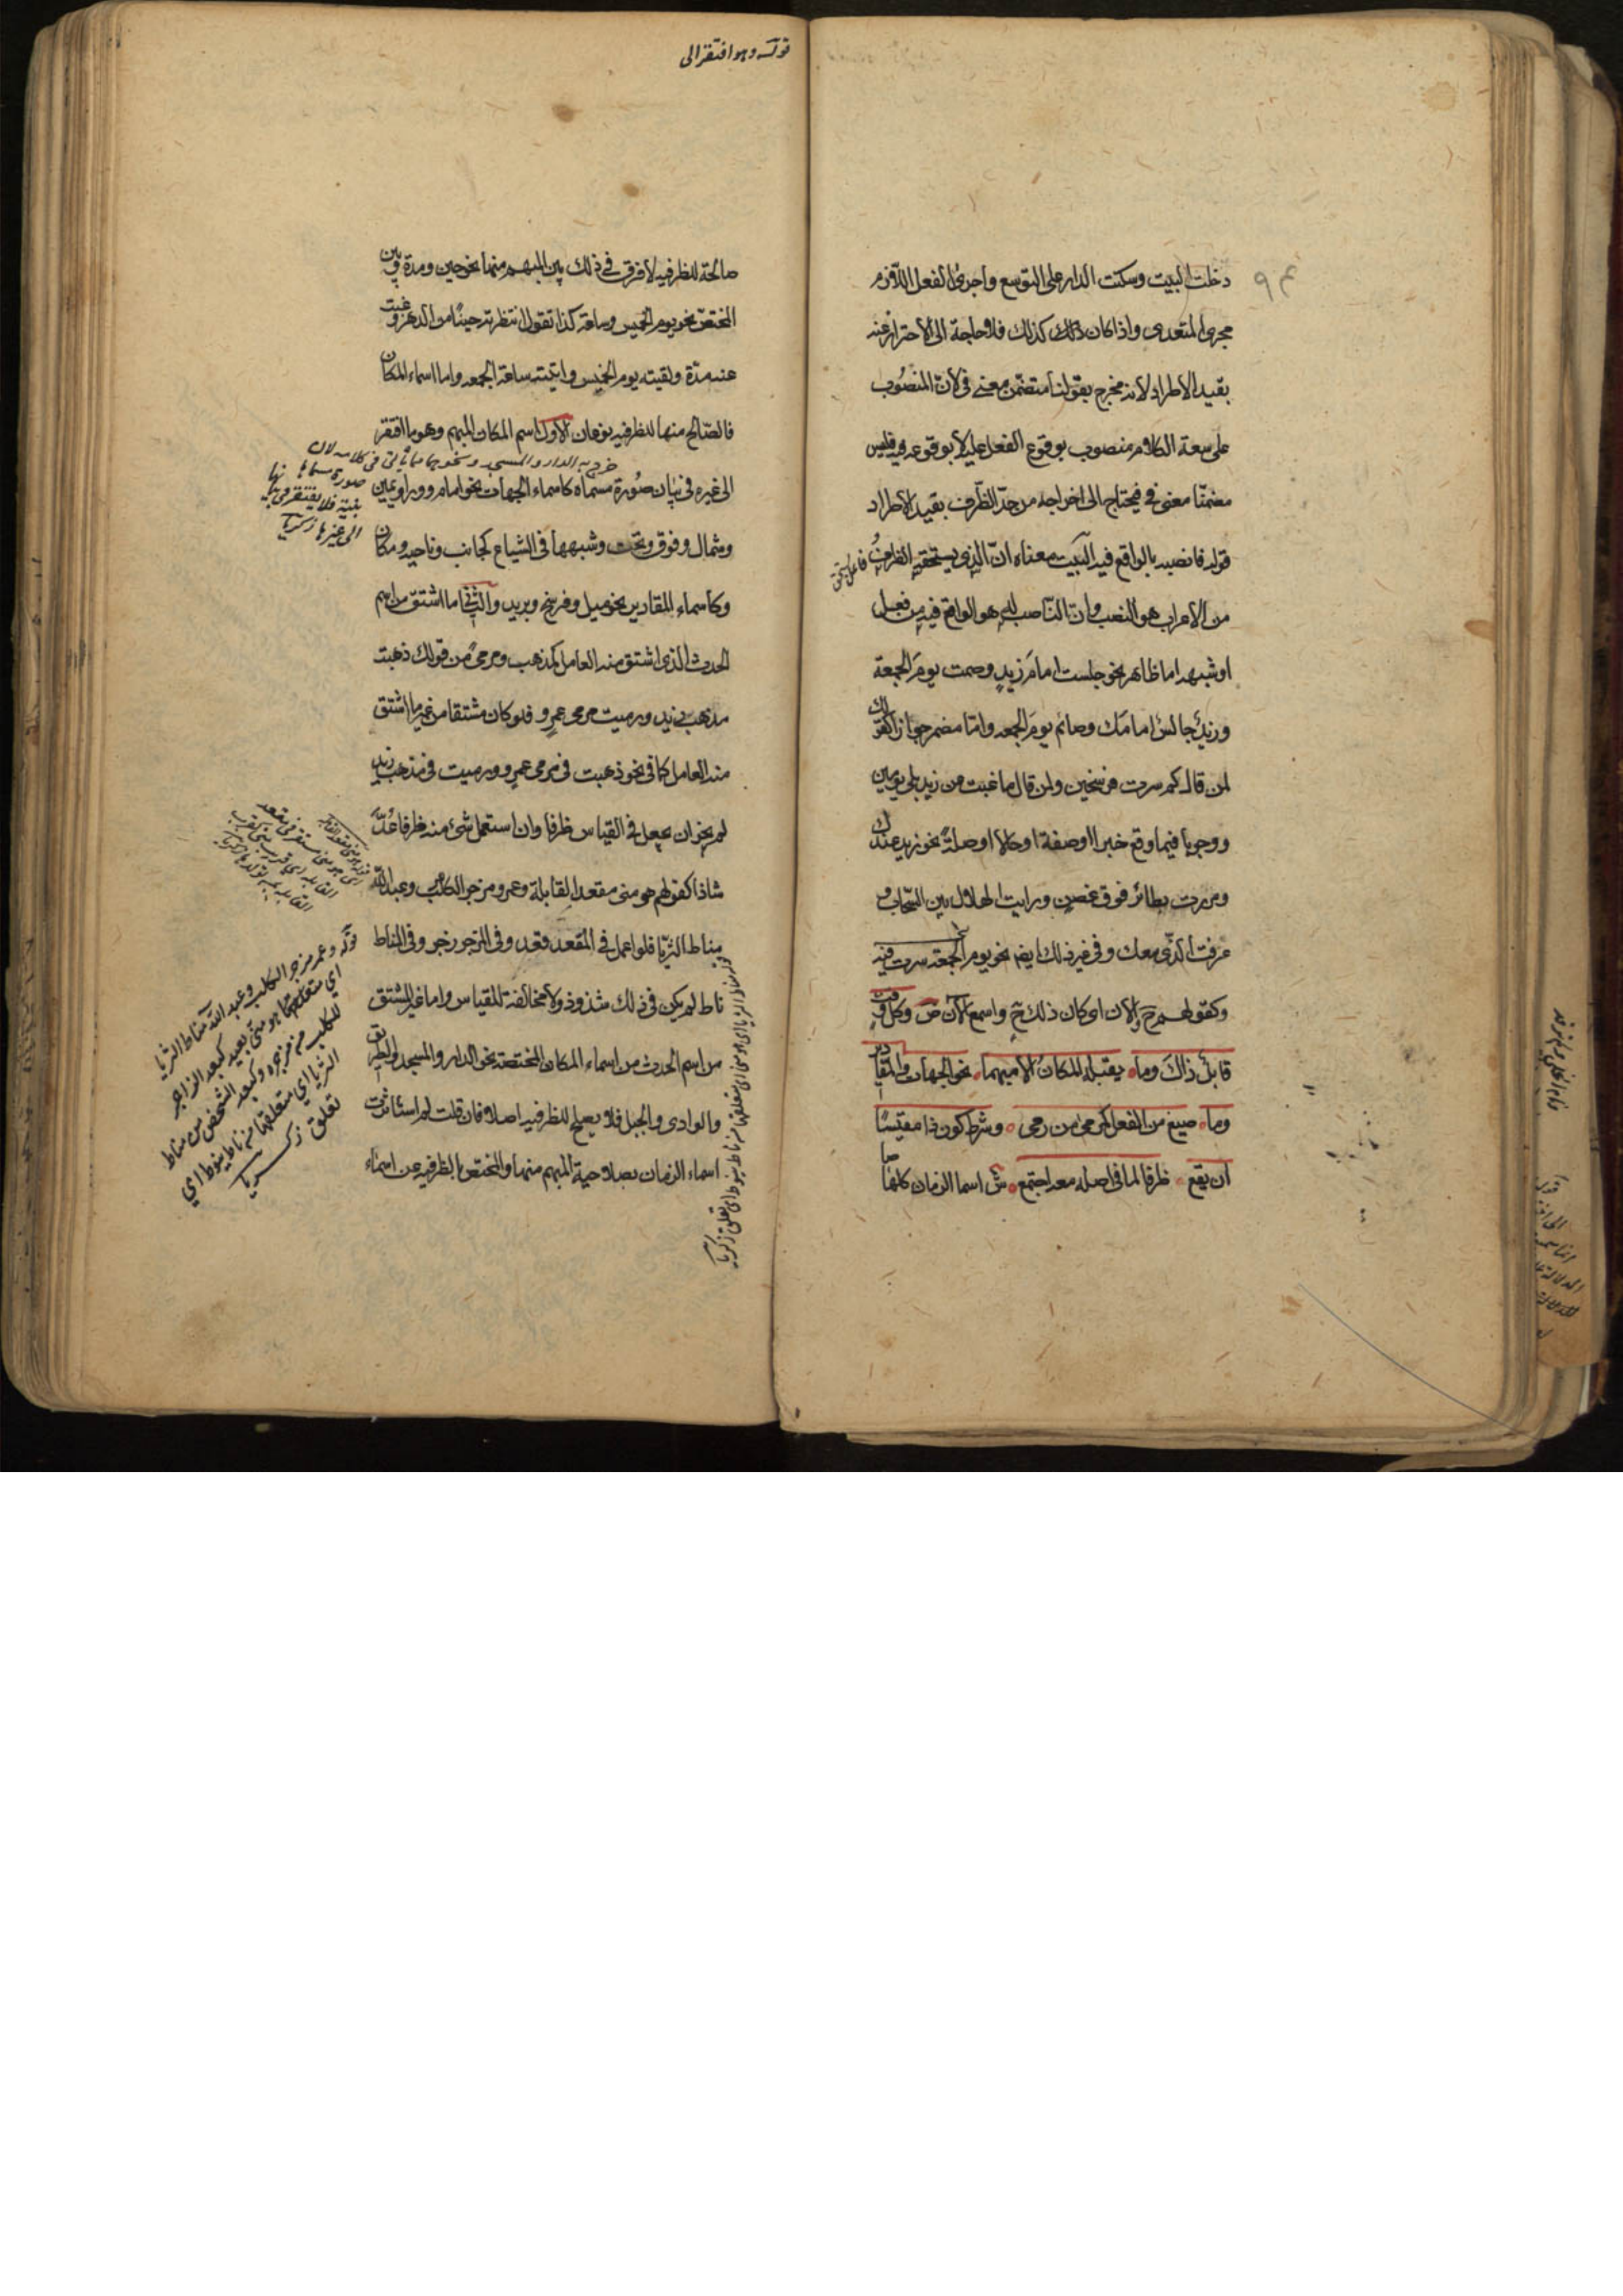 دخلت البيت وسكنت الدار على التوسع واجرى الفعل اللازم
مجرى المتعدى واذا كان ذلك كذلك فلا حاجة الى الاحتراز عنه
بقيد الاطراد لانه مخرج بقولنا متضمن معنى فى لانّ المنصوب
على سعة الكلام منصوب بوقوع الفعل عليه لا بوقوعه فيه فليس
مضمنا معنى فى فيحتاج الى اخراجه من حدّ الظّرف بقيد الاطراد
قوله فانصبه بالواقع فيه البيت معناه انّ الذى يستحقه الظرف
من الاعراب هو النصب وان النّاصب له هو الواقع فيه من فعل
او شبهه اما ظاهر نحو جلست امامَ زيدٍ وصمت يومَ الجمعة
وزيدٌ جالسٌ امامك وصائم يومَ الجمعه وامّا مضمر جوازا كقولك
لمن قال كم سرت فرسخين ولمن قال ما غبت من زيد بلى يومين
ووجوبا فيما وقع خبرا او صفة او حالا او صلة نحو زيد عندك
ومررت بطائر فوق غصن ورايت الهلال بين السّحاب و
عرفت الذّى معك وفى غير ذلك ايض نحو يوم الجمعة سرت فيه
وكقولهم ح الآن اى كان ذلك ح واسمع الآن ص وكل وقت
قابلٌ ذاكَ وما يقبله المكانُ الا مبهما نحو الجهات والمقادير
وما صيغ من الفعل كمرمى من رمى وشرط كون ذا مقيسًا
ان يقع ظرفا لما فى اصله معه اجتمع ش اسما الزمان كلها
قوله وهو ما افتقر الى
صالحة للظرفيه لا فرق فى ذلك بين المبهم منها نحو حين ومدة وبين
المختصّ نحو يوم الخميس وساعة كذا تقول انتظرته حينًا من الدهر وغبت
عنه مدّة ولقيته يوم الخميس واتيته ساعة الجمعه واما اسماء المكان
فالصّالح منها للظرفيه نوعان الاول اسم المكان المبهم وهو ما افتقر
الى غيره فى بيان صورة مسماه كاسماء الجهات نحو امام ووراء ويمين
وشمال وفوق وتحت وشبهها فى الشياع كجانب وناحيه ومكان
وكاسماء المقادير نحو ميل وفرسخ وبريد والثانى ما اشتق من اسم
الحدث الذى اشتق منه العامل كمذهب ومرمى من قولك ذهبت
مذهب زيد ورميت مرمى عمرو فلو كان مشتقا من غير ما اشتق
منه العامل كما فى نحو ذهبت فى مرمى عمرو ورميت فى مذهب زيد
لم يجز ان يجعل فى القياس ظرفا وان استعمل شئ منه ظرفا عُدّ
شاذا كقولهم هو منى مقعد القابلة وعمرو مزجر الكلب وعبد اللّه
مناط الثريّا فلو اعمل فى المقعد قعد وفى الزجر زجر وفى المناط
ناط لم يكن فى ذلك شذوذ ولا مخالفة للقياس واما غير المشتق
من اسم الحدث من اسماء المكان المختصة نحو الدار والمسجد والطريق
والوادى والجبل فلا يصلح للظرفيه اصلا فان قلت لم استاثرت
اسماء الزمان بصلاحية المبهم منها والمختص بالظرفيه عن اسماء
خرج به الدار والمسجد ونحوهما مما يأتى فى كلامه لان
صورة مسماها
بينة فلا يفتقر فى بيانها
الى غيرها زكريا
قوله وعمرو مزجر الكلب وعبد الله مناط الثريا
اي متعلقهما هو منى بعيد كبعد الزاجر
للكلب من مزجره وكبعد الشخص من مناط
الثريا اي متعلقها من ناط ينوط اي
تعلق زكريا